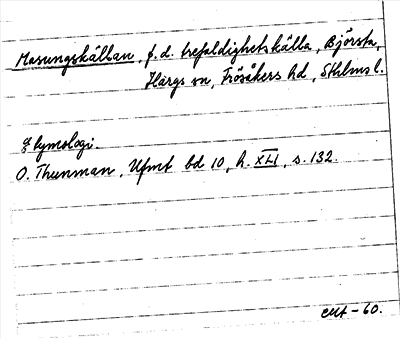 Masungskällan, f.d. trefaldighetskälla, Björsta,
Hargs sn, Frösåkers hd, Sthlms l.
Etymologi.
O. Thunman, Ufmt bd 10, h. XLI, s. 132.
-60.